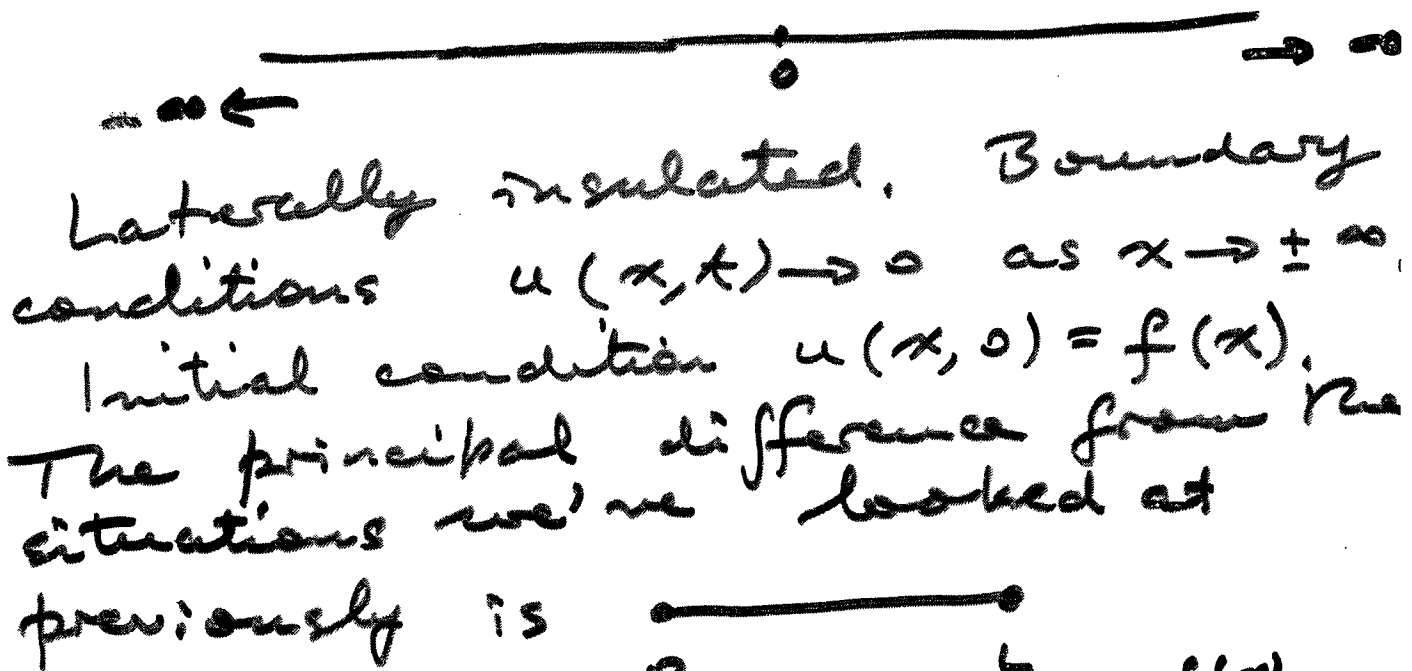 0
- ∞ ← → ∞
Laterally insulated. Boundary
conditions u(x,t) → 0 as x → ± ∞.
Initial condition u(x,0) = f(x).
The principal difference from the
situations we've looked at
previously is